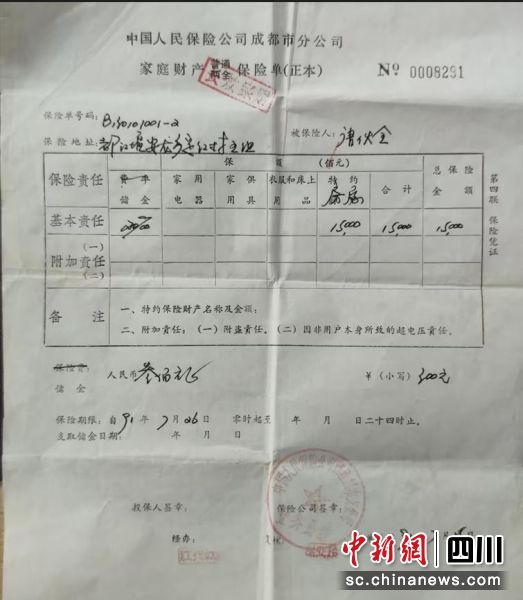 中国人民保险公司成都市分公司
家庭财产 普通 两全 保险单(正本) № 0008291
保险单号码: B130101001-2
保险地址: 都江堰 被保险人:
保 额 (佰元)
保险责任 费率 储金 家用电器 家俱用具 衣服和床上用品 特约 房屋 合计 总保险金额
基本责任 15,000 15,000 15,000
附加责任 (一) (二)
备注 一、特约保险财产名称及金额:
二、附加责任:(一)附盗责任。(二)因非用户本身所致的超电压责任。
第四联 保险凭证
保险费: 储金 人民币 叁佰元 ¥(小写) 300元
保险期限:自 91 年 7 月 26 日 零时起至 年 月 日二十四时止。
支取储金日期: 年 月 日
投保人签章: 保险公司签章:
经办:
中新网 四川
sc.chinanews.com